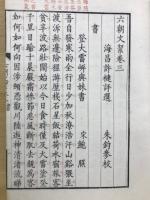 六朝文絜卷三
海昌許槤評選 朱鈞參校
書
登大雷岸與妹書 宋鮑照
吾自發寒雨全行日少加秋潦浩汗山谿猥至
渡泝無邊險徑遊歷棧石星飯結荷水宿旅客
貧辛波路壯闊始以今日食時僅及大雷塗登
千里日踰十晨嚴霜慘節悲風斷肌去親為客
如何如何向因涉頓憑觀川陸遨神清渚流睇